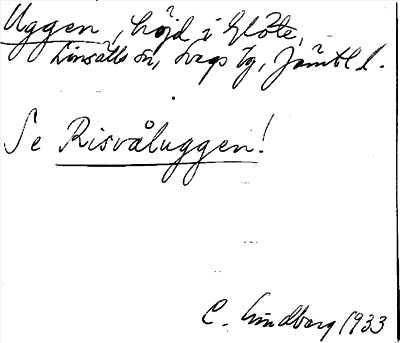 Uggen, höjd i Glöte,
Linsälls sn, Svegs tg, Jämtl l.
Se Risvåluggen!
C. Lindborg 1933